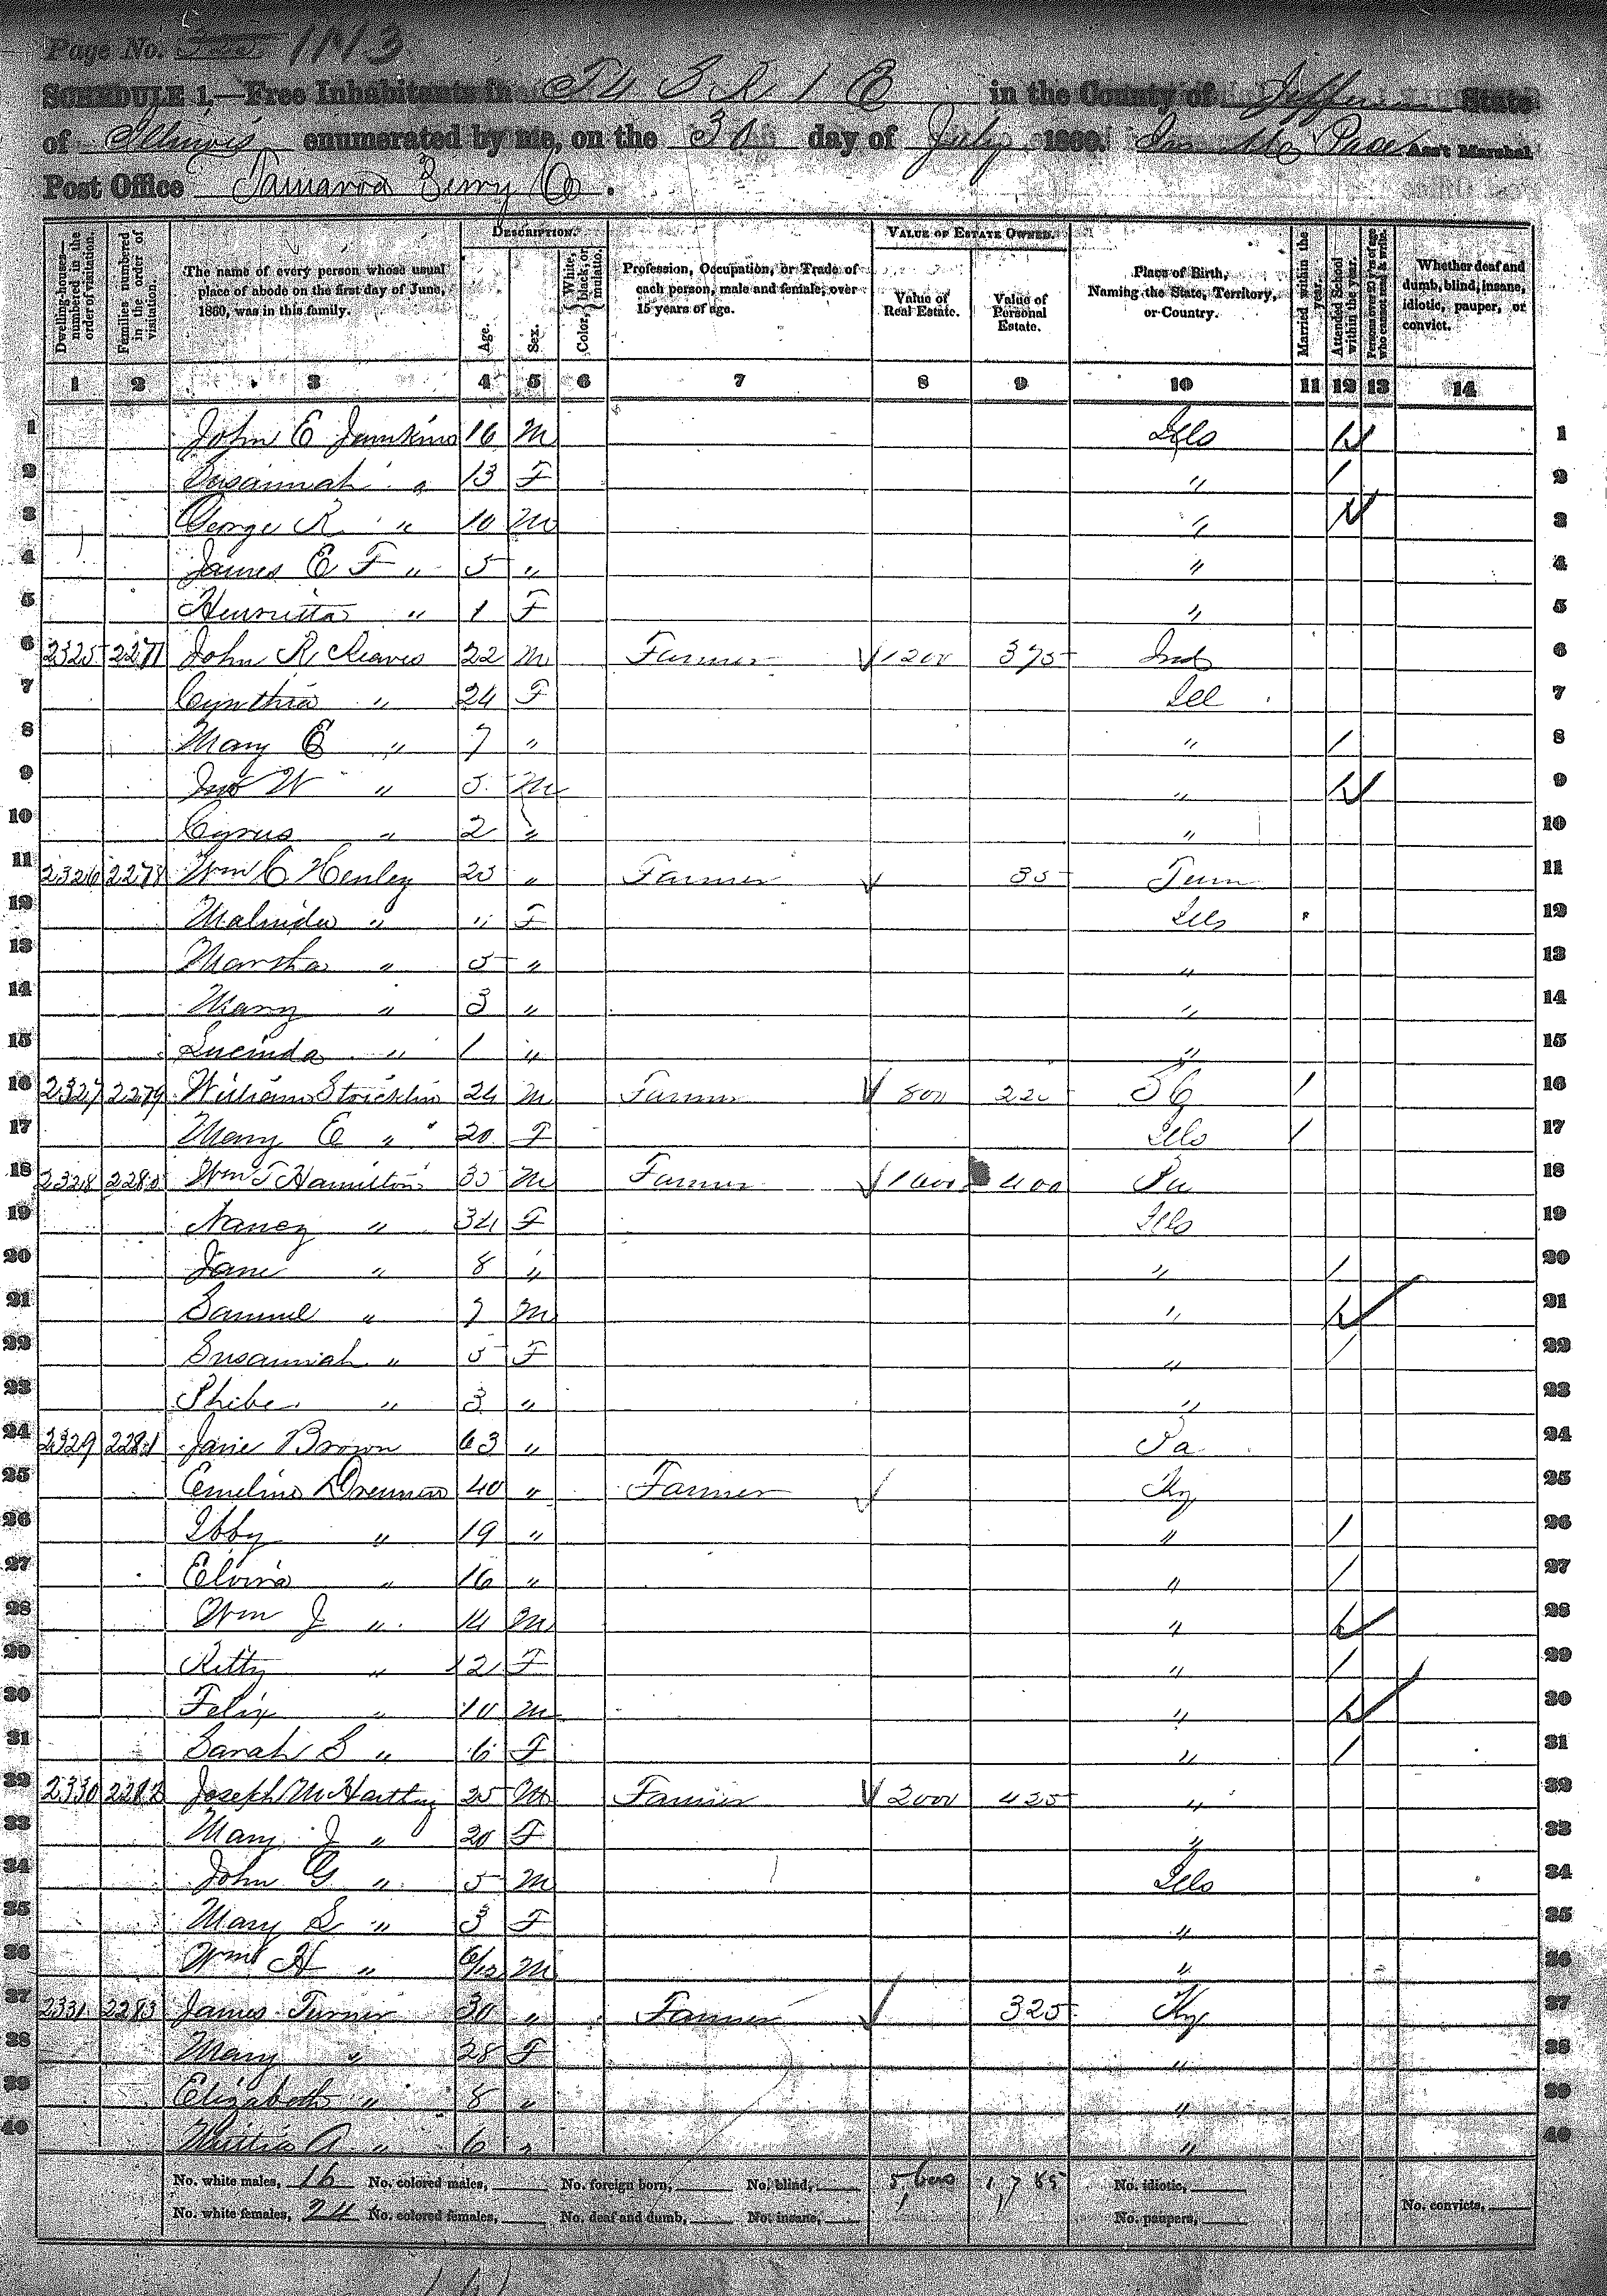 Page No. 113
SCHEDULE 1.—Free Inhabitants in T4 S R 1 E in the County of Jefferson State
of Illinois enumerated by me, on the 30 day of July 1860. Pace Ass't Marshal
Post Office Tamaroa Perry Co.
Dwelling-houses—numbered in the order of visitation. Families numbered in the order of visitation. The name of every person whose usual place of abode on the first day of June, 1860, was in this family. DESCRIPTION. Age. Sex. Color, {White, black, or mulatto. Profession, Occupation, or Trade of each person, male and female, over 15 years of age. VALUE OF ESTATE OWNED. Value of Real Estate. Value of Personal Estate. Place of Birth, Naming the State, Territory, or Country. Married within the year. Attended School within the year. Persons over 20 y'rs of age who cannot read & write. Whether deaf and dumb, blind, insane, idiotic, pauper, or convict.
1 2 3 4 5 6 7 8 9 10 11 12 13 14
1 John E 16 M Ills / 1
2 Susannah " 13 F " / 2
3 George R " 10 M " / 3
4 James E F " 5 " " 4
5 Henrietta " 1 F " 5
6 2325 2277 John R 22 M Farmer 1200 375 Ind 6
7 Cynthia " 24 F Ill 7
8 Mary E " 7 " " / 8
9 Jno W " 5 M " / 9
10 Cyrus " 2 " " 10
11 2326 2278 Wm C Henley 25 " Farmer 35 Tenn 11
12 Malinda " " F Ills 12
13 Marsha " 5 " " 13
14 Mary " 3 " " 14
15 Lucinda " 1 " " 15
16 2327 2279 William Stricklin 24 M Farmer 800 220 S C / 16
17 Mary E " 20 F Ills / 17
18 2328 2280 Wm T Hamilton 35 M Farmer 1600 400 Pa 18
19 Nancy " 34 F Ills 19
20 Jane " 8 " " / 20
21 Samuel " 7 M " / 21
22 Susannah " 5 F " / 22
23 Phibe " 3 " " 23
24 2329 2281 Jane Brown 63 " Pa 24
25 Emeline Drennan 40 " Farmer Ky 25
26 Ibby " 19 " " / 26
27 Elvira " 16 " " / 27
28 Wm J " 14 M " / 28
29 Kitty " 12 F " / 29
30 Felix " 10 M " / 30
31 Sarah S " 6 F " / 31
32 2330 2282 Joseph M Hartley 25 M Farmer 2000 425 " 32
33 Mary J " 20 F " 33
34 John G " 5 M Ills 34
35 Mary S " 3 F " 35
36 Wm H " 6/12 M " 36
37 2331 2283 James Turner 30 " Farmer 325 Ky 37
38 Mary " 28 F " 38
39 Elizabeth " 8 " " 39
40 A " 6 " " 40
No. white males, 16 No. colored males, No. foreign born, No. blind, 5,600 1,785 No. idiotic,
No. white females, 24 No. colored females, No. deaf and dumb, No. insane, No. paupers, No. convicts,